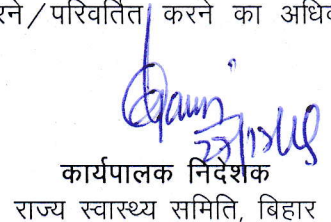 रने/परिवर्तित करने का अधिक
कार्यपालक निदेशक
राज्य स्वास्थ्य समिति, बिहार